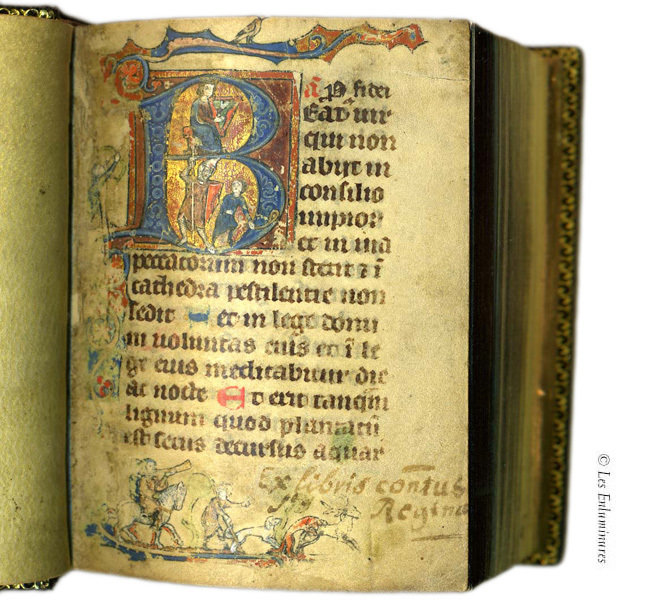 B
Eat' uir
qui non
abijt in
consilio
impior
et in uia
peccatorum non stetit ⁊ ī
cathedra pestilentie non
sedit et in lege domī
in uoluntas eius et ī le
ge eius meditabitur die
ac nocte Et erit tanqm
lignum quod plantatū
est secus decursus aquar
Ex libris contus
Regina
© Les Enluminures